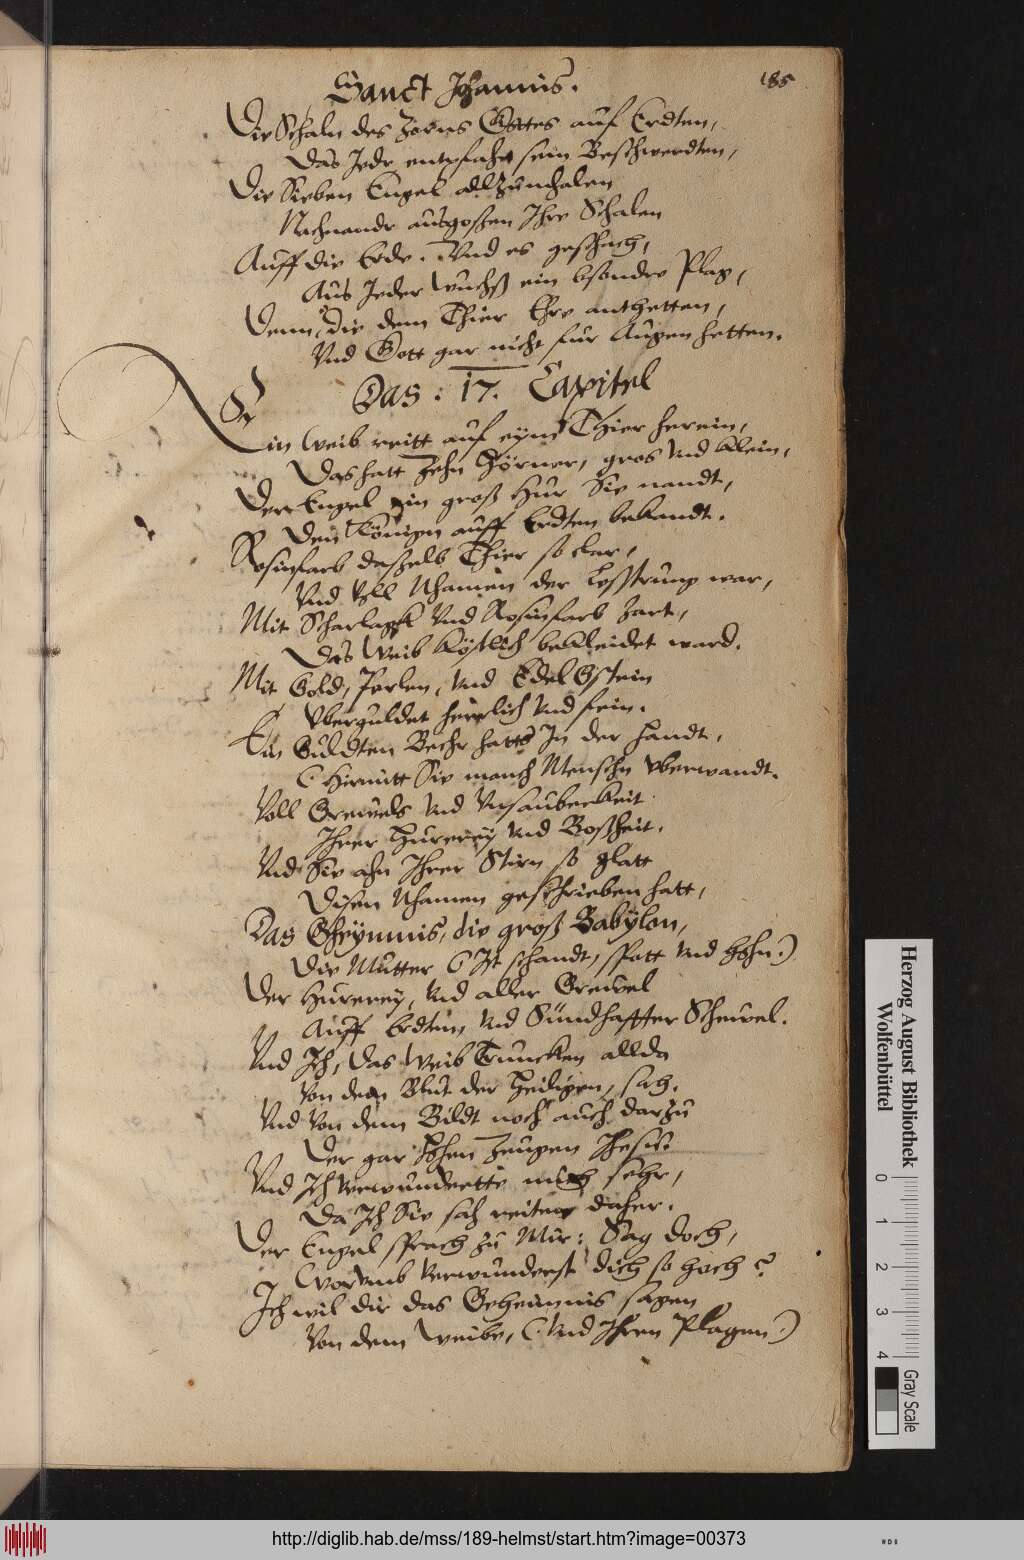 Sanct Johannis.
185
Die Schaln des Zorns Gottes auf Erdten,
Das Jede entpfaht sein Beschwerdten,
Die Sieben Engel allzumhalen
Nachnandr ausgoßen Ihre Schalen
Auff die Erde. Vnd es geschach,
Aus Jeder wuchß ein bsondre Plag,
Denn, die dem Thier Ehre anthetten,
Vnd Gott gar nicht fur Augen hetten.
Das : 17. Capitel
Ein Weib reitt auf eym Thier herein,
Das hatt Zehn Hörner, gros vnd klein,
Der Engel ein groß Hur Sie nandt,
Den Königen auff Erdten bekandt.
Rosinfarb dasselb Thier so clar,
Vnd voll Nhamen der Lesstrung war,
Mit Scharlagk vnd Rosinfarb zart,
Das Weib köstlich bekleidet ward.
Mit Gold, Perlen, vnd Edel Gstein
Vberguldet herrlich vnd fein.
Ein Guldten Bechr hatts In der Handt,
(Hirmitt Sie manch Menschn vberwandt.
Voll Greuels vnd Vnsauberkeit
Ihrer Hurerey vnd Boßheit.
Vnd Sie ahn Ihrer Stirn so glatt
Disen Nhamen geschrieben hatt,
Das Gheymnis, die groß Babylon,
Die Mutter (Ist schandt, spott vnd hohn.)
Der Hurerey, vnd aller Greuel
Auff Erdten, vnd Sündhaffter Scheuel.
Vnd Ich, das Weib Truncken allda
Von dem Blut der Heiligen, sach.
Vnd von dem Bildt noch auch darzu
Der gar hohen Zeugen Jhesu.
Vnd Ich verwunderte mich sehr,
Da Ich Sie sah reiten daher.
Der Engel sprach zu Mir: Sag doch,
Worumb verwunderst dich so hoch?
Ich wil dir das Geheimnis sagen
Von dem Weibe, (Vnd Ihren Plagen.)
Herzog August Bibliothek
Wolfenbüttel
0 1 2 3 4
Gray Scale
http://diglib.hab.de/mss/189-helmst/start.htm?image=00373